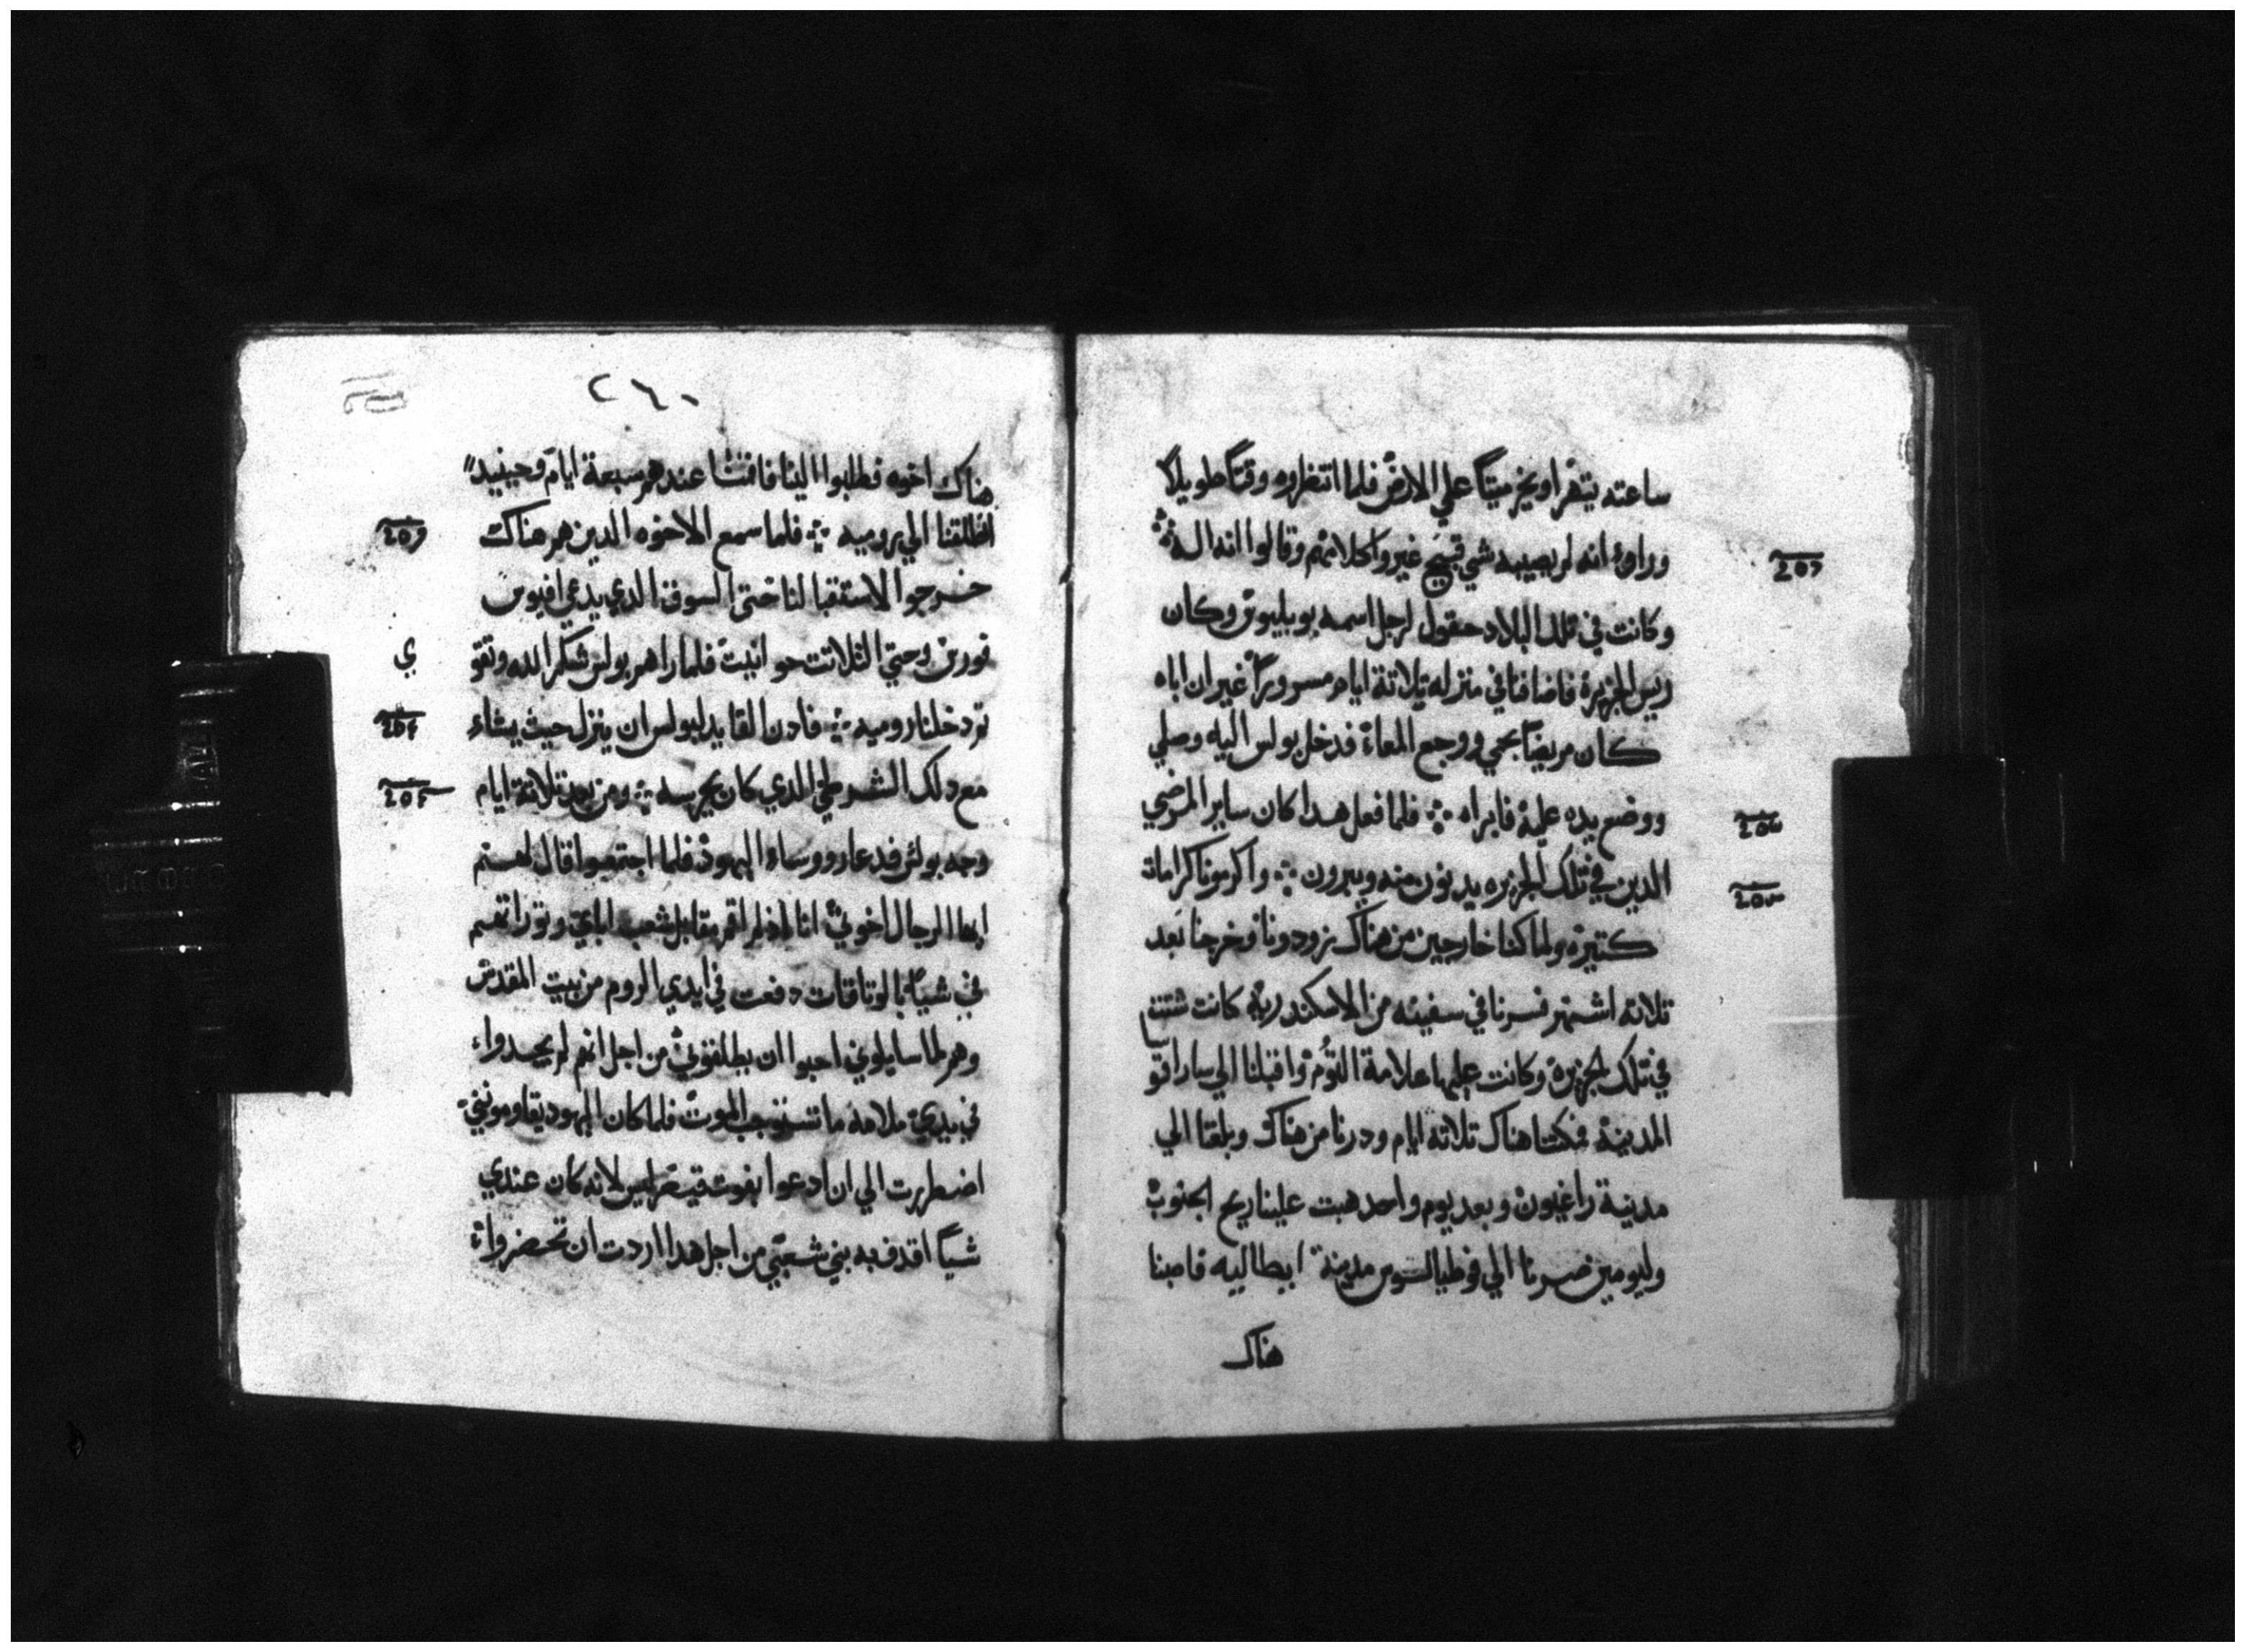 ساعته يتهرا ويخر ميتًا علي الارض فلما انتظروه وقتًا طويلاً
وراوا انه لم يصيبه شي قبيح غيروا كلامهم وقالوا انه اله
وكانت في تلك البلاد حقول لرجل اسمه بوبليوس وكان
ريس الجزيرة فاضافنا في منزله تلاتة ايام مسرورًا غير ان اباه
كان مريضًا بحمي ووجع المعاة فدخل بولس اليه وصلي
ووضع يده عليه فابراه ܀ فلما فعل هدا كان ساير المرضي
الدين في تلك الجزيره يدنون منه ويبرون ܀ واكرمونا كرامات
كتيرة ولما كنا خارجين من هناك زودونا وخرجنا بعد
تلاتة اشهر فسرنا في سفينه من الاسكندريه كانت شتت
في تلك الجزيرة وكانت عليها علامة التوم واقبلنا الي ساراقو
المدينة فمكتنا هناك تلاتة ايام ودرنا من هناك وبلغنا الي
مدينة راغيون وبعد يوم واحد هبت علينا ريح الجنوب
وليومين صرنا الي فوطيالسوس مدينة ايطاليه فاصبنا
هناك
٢٦٠
هناك اخوه فطلبوا الينا فاقمنا عندهم سبعة ايام وحينيد
انطلقنا الي روميه ܀ فلما سمع الاخوه الدين هم هناك
خرجوا لاستقبالنا حتي السوق الدي يدعي افيوس
فورس وحتي التلاتت حوانيت فلما راهم بولس شكر الله وتقو
ي
تم دخلنا روميه ܀ فادن القايد لبولس ان ينزل حيث يشاء
مع دلك الشرطي الدي كان يحرسه ܀ ومن بعد تلاتة ايام
وجه بولس فدعا رووساء اليهود فلما اجتمعوا قال لهم
ايها الرجال اخوتي انا اذ لم اقم مقابل شعب اباي وتوراتهم
في شيًا بالوتاقات دفعت في ايدي الروم من بيت المقدس
وهم لما سايلوني احبوا ان يطلقوني من اجل انهم لم يجدوا
في يدي ملامة ما تستوجب الموت فلما كان اليهود يقاوموني
اضطررت الي ان ادعوا بغوت قيصر ليس لانه كان عندي
شيًا اقدف به بني شعبي من اجل هدا اردت ان تحضروا